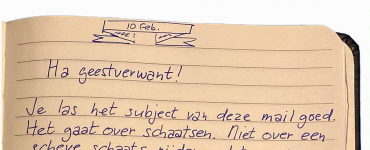 10 Feb.
Ha geestverwant!
Je las het subject van deze mail goed.
Het gaat over schaatsen. Niet over een
scheve schaats